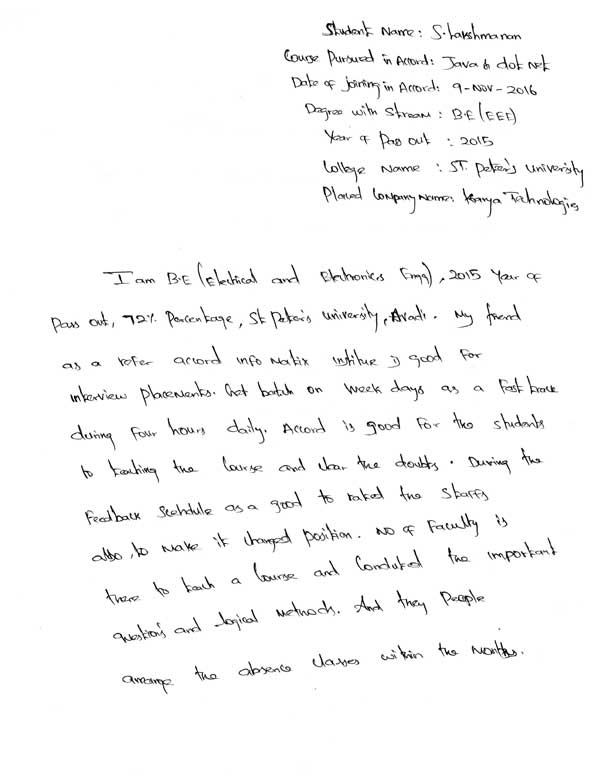 Student Name: S. Lakshmanan
Course Pursued in Accord: Java & dot net
Date of joining in Accord: 9-Nov-2016
Degree with Stream: B.E (EEE)
Year of Pass out : 2015
College Name : ST. Peter's University
Placed Company Name: Technologies
I am B.E (Electrical and Electronics Engg), 2015 Year of
Pass out, 72% Percentage, St Peter's University, Avadi. My friend
as a refer accord info Matix institue is good for
interview placements. Get batch on week days as a fast track
during four hours daily. Accord is good for the students
to teaching the Course and clear the doubts. During the
Feedback Scehdule as a good to rated the Staffs
also, to make it changed position. No of Faculty is
there to teach a Course and Conducted the important
question's and logical methods. And they People
arrange the absence classes within the Months.